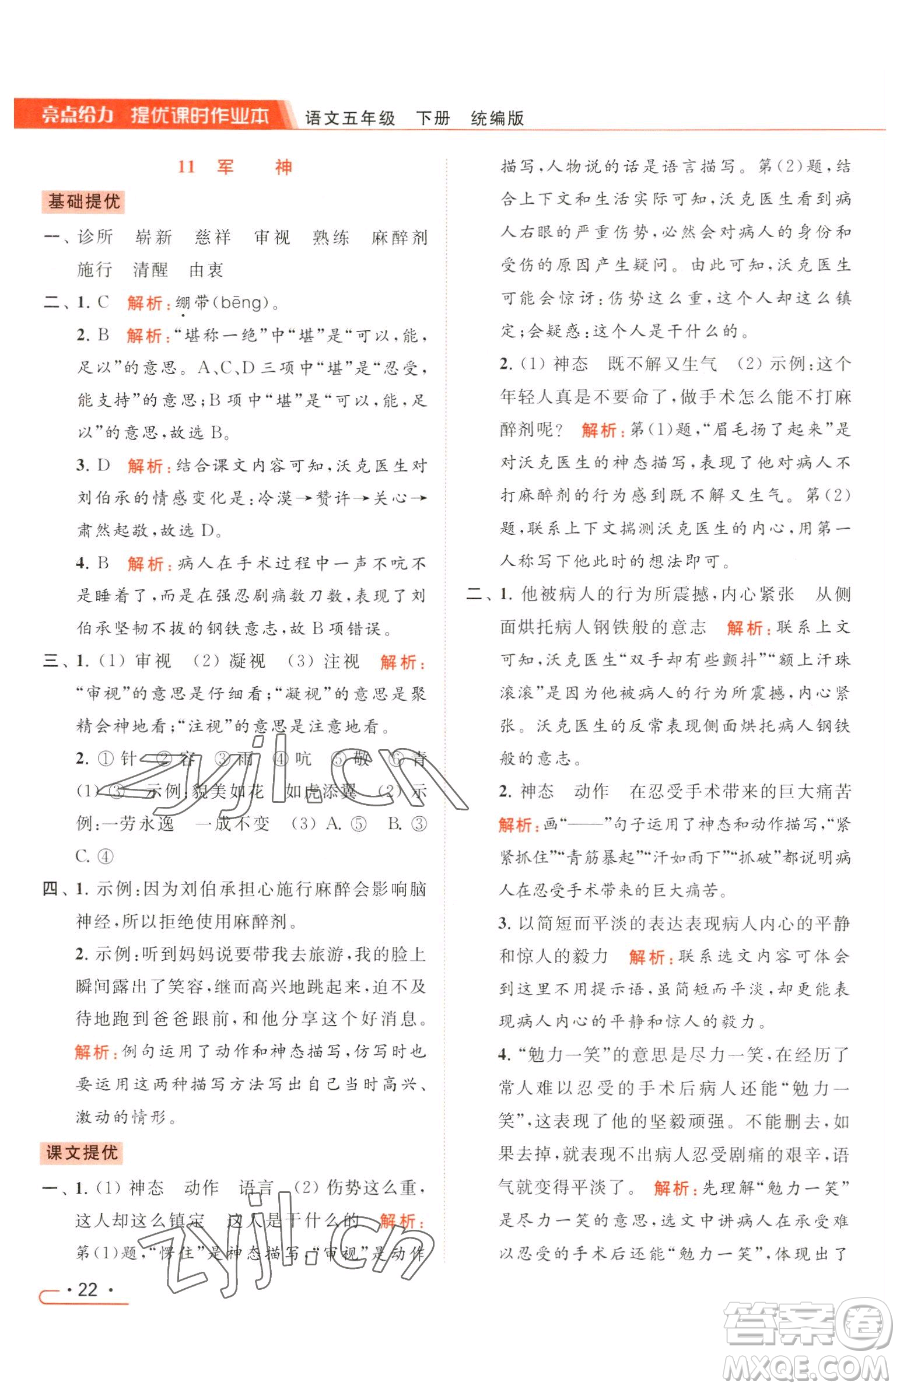 亮点给力 提优课时作业本 语文五年级 下册 统编版
11 军 神
基础提优
一、诊所 崭新 慈祥 审视 熟练 麻醉剂
施行 清醒 由衷
二、1. C 解析:绷带(bēng)。
2. B 解析:“堪称一绝”中“堪”是“可以,能,
足以”的意思。A、C、D三项中“堪”是“忍受,
能支持”的意思;B项中“堪”是“可以,能,足
以”的意思,故选B。
3. D 解析:结合课文内容可知,沃克医生对
刘伯承的情感变化是:冷漠→赞许→关心→
肃然起敬,故选D。
4. B 解析:病人在手术过程中一声不吭不
是睡着了,而是在强忍剧痛数刀数,表现了刘
伯承坚韧不拔的钢铁意志,故B项错误。
三、1. (1) 审视 (2) 凝视 (3) 注视 解析:
“审视”的意思是仔细看;“凝视”的意思是聚
精会神地看;“注视”的意思是注意地看。
2. ①针 ②容 ③雨 ④吭 ⑤敬 ⑥青
(1) ③ 示例:貌美如花 如虎添翼 (2) ④ 示
例:一劳永逸 一成不变 (3) A. ⑤ B. ③
C. ④
四、1. 示例:因为刘伯承担心施行麻醉会影响脑
神经,所以拒绝使用麻醉剂。
2. 示例:听到妈妈说要带我去旅游,我的脸上
瞬间露出了笑容,继而高兴地跳起来,迫不及
待地跑到爸爸跟前,和他分享这个好消息。
解析:例句运用了动作和神态描写,仿写时也
要运用这两种描写方法写出自己当时高兴、
激动的情形。
课文提优
一、1. (1) 神态 动作 语言 (2) 伤势这么重,
这人却这么镇定 这人是干什么的 解析:
第(1)题,“愣住”是神态描写,“审视”是动作
描写,人物说的话是语言描写。第(2)题,结
合上下文和生活实际可知,沃克医生看到病
人右眼的严重伤势,此时会对病人的身份和
受伤的原因产生疑问。由此可知,沃克医生
可能会惊讶:伤势这么重,这个人却这么镇
定;会疑惑:这个人是干什么的。
2. (1) 神态 既不解又生气 (2) 示例:这个
年轻人真是太固执了,做手术怎么能不打麻
醉剂呢? 解析:第(1)题,“眉毛扬了起来”是
对沃克医生的神态描写,表现了他对病人不
打麻醉剂的行为感到既不解又生气。第(2)
题,联系上下文揣测沃克医生的内心,用第一
人称写下他此时的想法即可。
二、1. 他被病人的行为所震撼,内心紧张 从侧
面烘托病人钢铁般的意志 解析:联系上文
可知,沃克医生“双手却有些颤抖”“额上汗珠
滚滚”是因为他被病人的行为所震撼,内心紧
张。沃克医生的反常表现侧面烘托病人钢铁
般的意志。
2. 神态 动作 在忍受手术带来的巨大痛苦
解析:画“——”句子运用了神态和动作描写,“紧
紧抓住”“青筋暴起”“汗如雨下”“抓破”都说明病
人在忍受手术带来的巨大痛苦。
3. 以简短而平淡的表达表现病人内心的平静
和惊人的毅力 解析:联系选文内容可体会
到这里不用提示语,虽简短而平淡,却能表现
出病人内心的平静和惊人的毅力。
4. “勉力一笑”的意思是尽力一笑,在经历了
常人难以忍受的手术后病人还能“勉力一
笑”,表现了他的坚毅顽强。不能删去,如果
删去这个词,就体现不出病人忍受剧痛的艰辛,语
气就变得平淡了。 解析:先理解“勉力一笑”
是尽力一笑的意思,选文中讲病人在承受难
以忍受的手术后还能“勉力一笑”,体现出了
·22·
zyjl.cn
zyjl.cn
答案圈
MXQE.COM